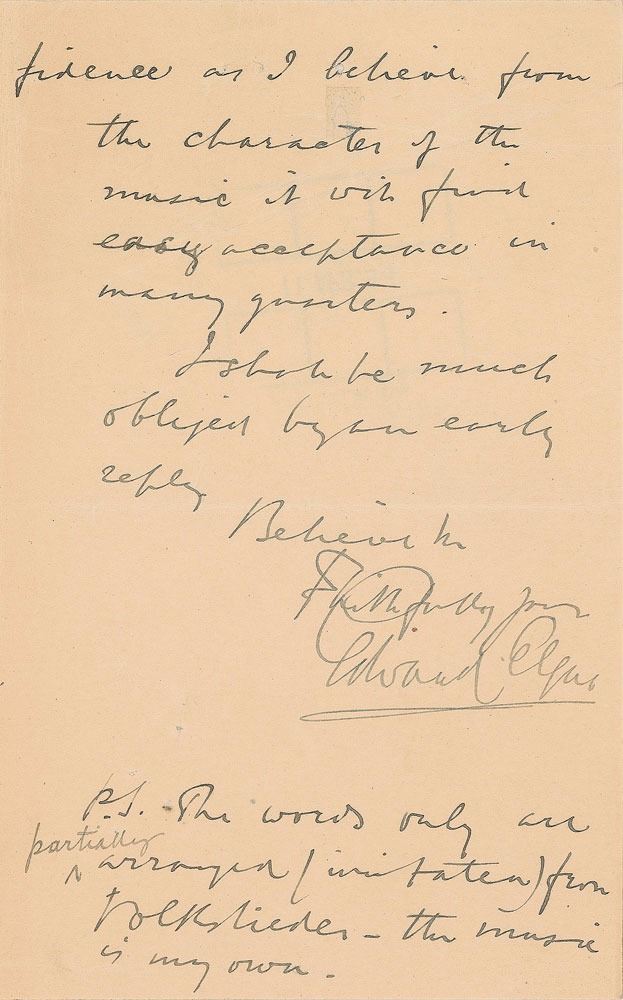 fidence as I believe from
the character of the
music it will find
easy acceptance in
many quarters.
I shall be much
obliged by an early
reply
Believe me
Faithfully yours
Edward Elgar
P.S. The words only are
partially
arranged (imitated) from
Volkslieder - the music
is my own.